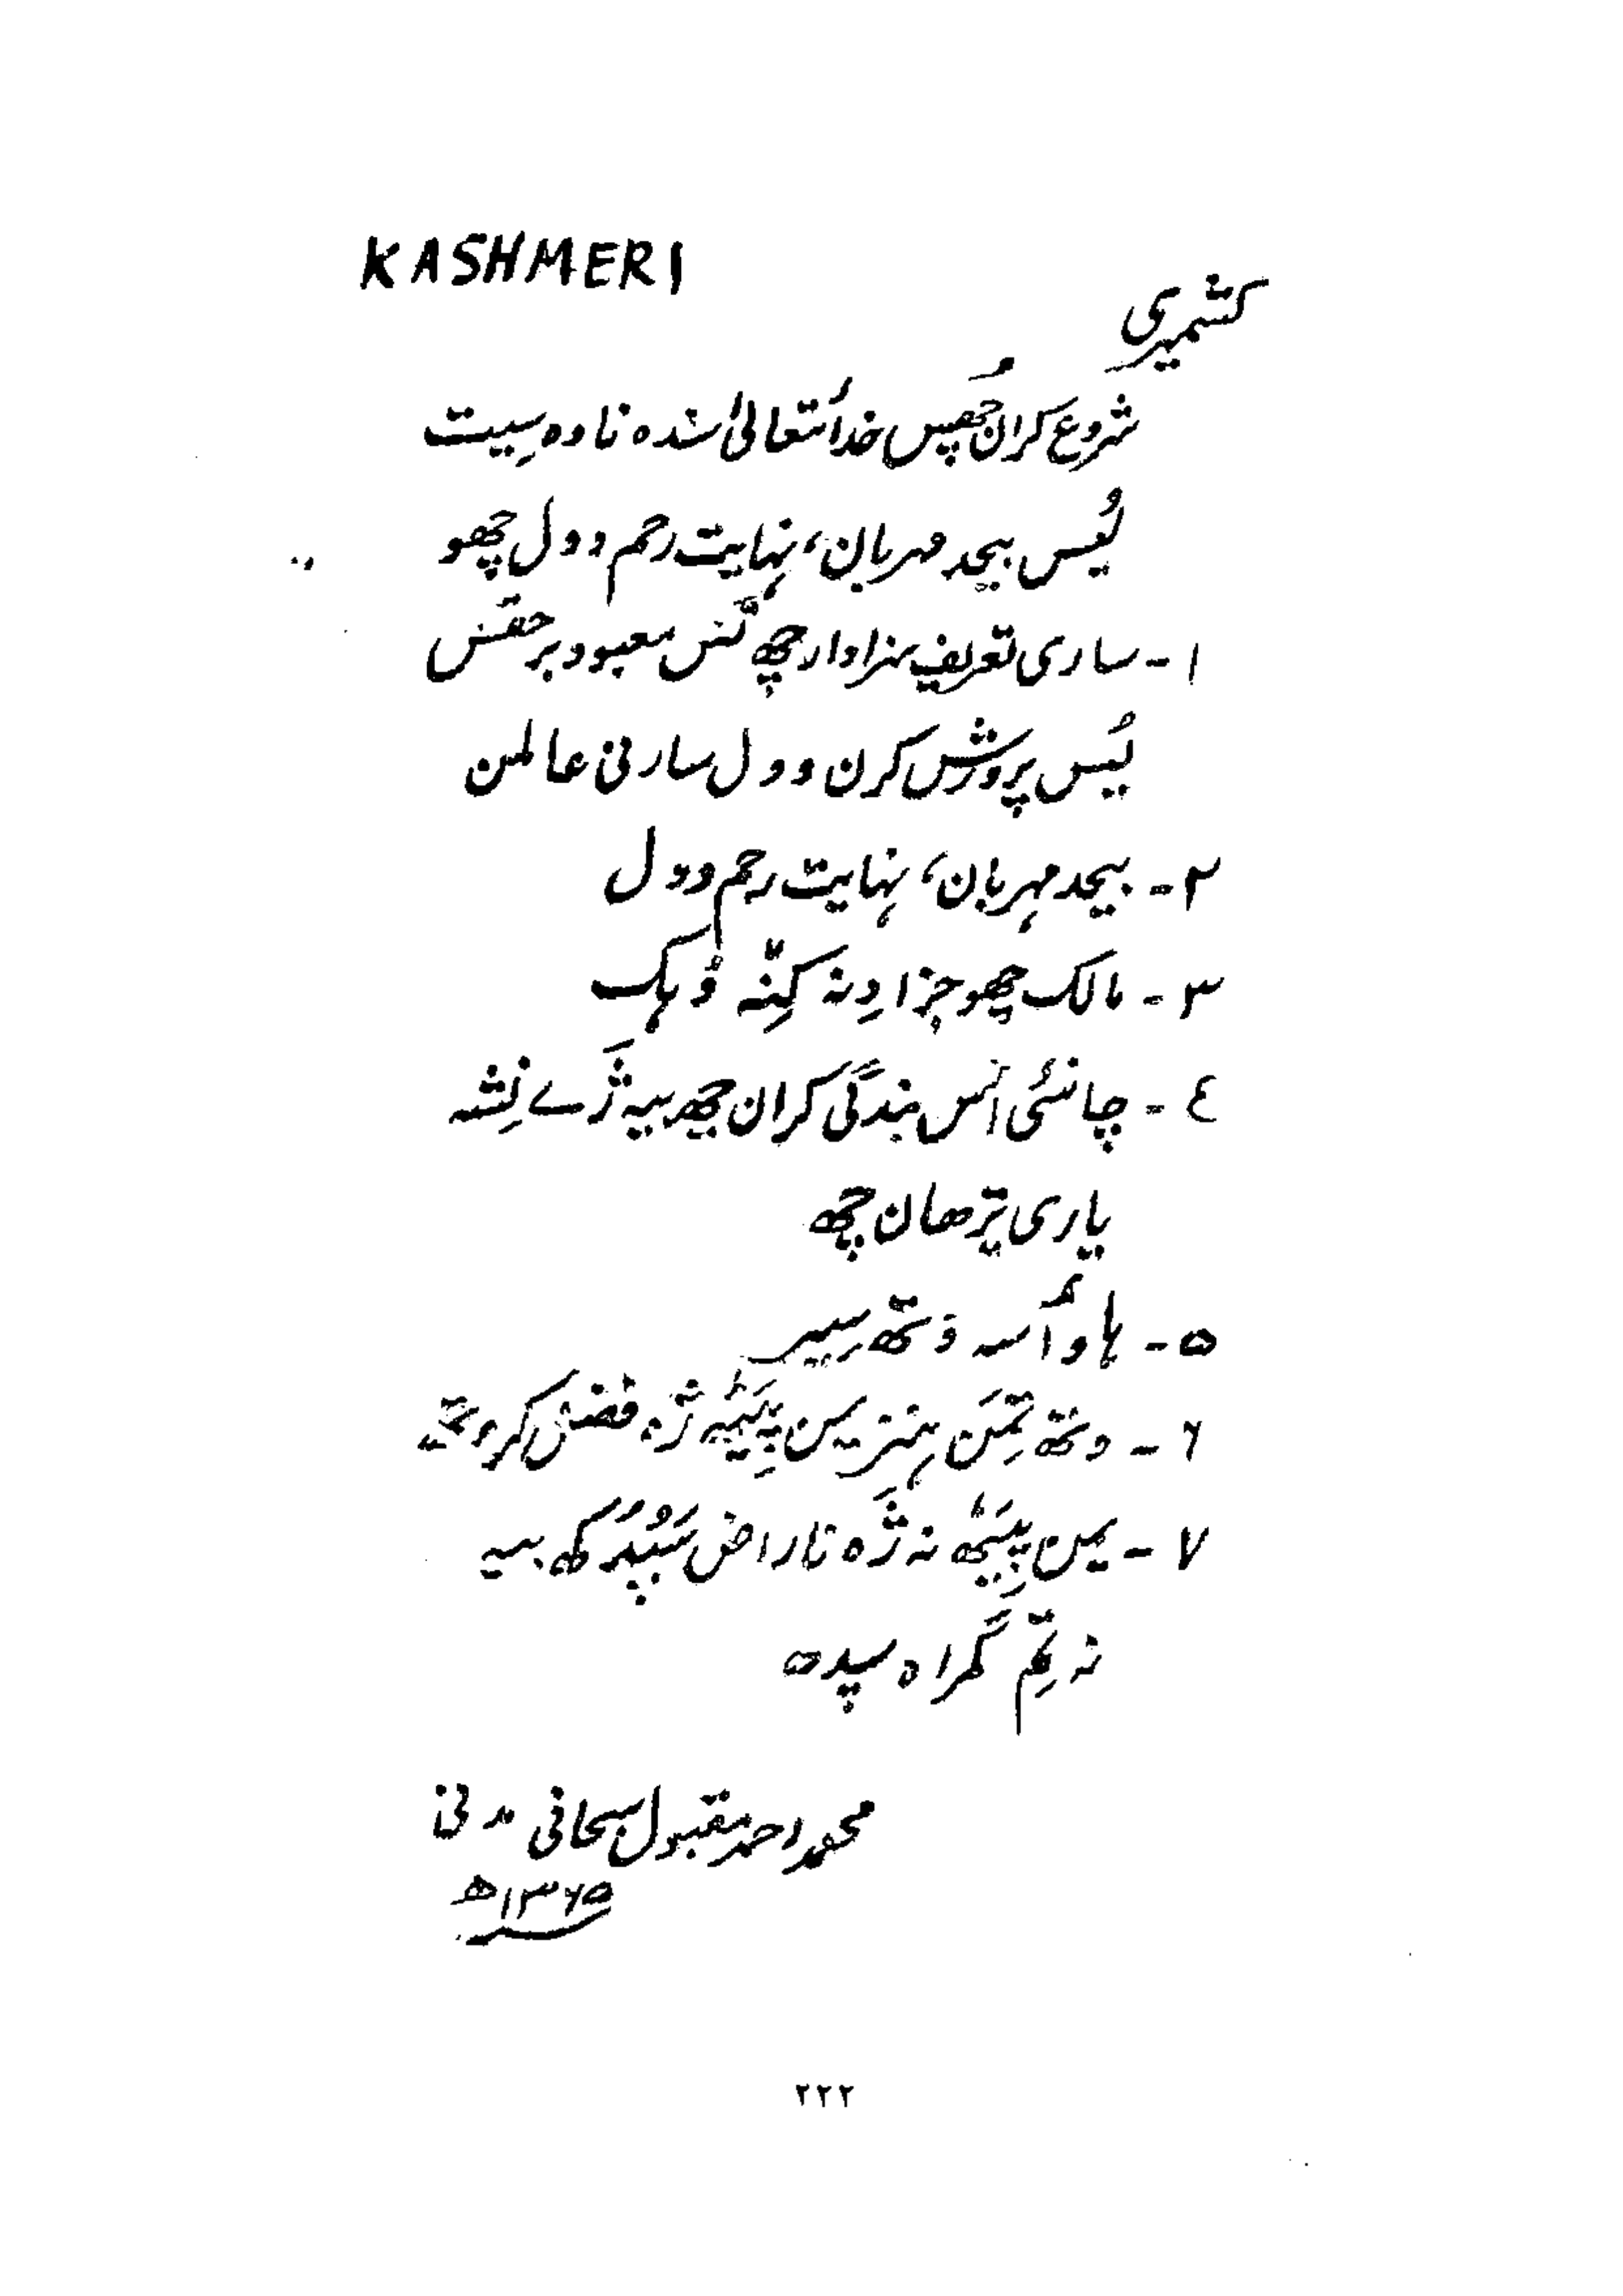 KASHMERI
کشمیری
شروع کران چُھس خدائتعالیٰ سُندہ ناوہ سِیت
یُس بیحد مہربان، نہایت رحم وول چھو
۱- ساری تعریف سزاوار چھ تَس معبود برحقس
یُس پرورش کرن وول سارنی عالمن
۲- بیحد مہربان، نہایت رحم وول
۳- مالک چھو جزا دِنہ کِنہ دُہک
٤- چانئی اَس بندگی کران چھ بیہ ژَے نِشہ
یاری ترھان چھ
۵- ہاو اُسہ وَتھ سِیر
٦- وتھ تِمَن ہنز یمن پِیٹھ ژہ فضل کرو
۷- یمن پِیٹھ نہ ژَہ ناراض سَپُدُکھ بیہ
نہ تِم گمراہ سپدہ
محمد احمد مقبول سبحانی مدنی
۱۳٦۵ھ
۲۲۲